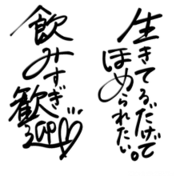 生きてるだけで
ほめられたい。
飲みすぎ
歓迎♡